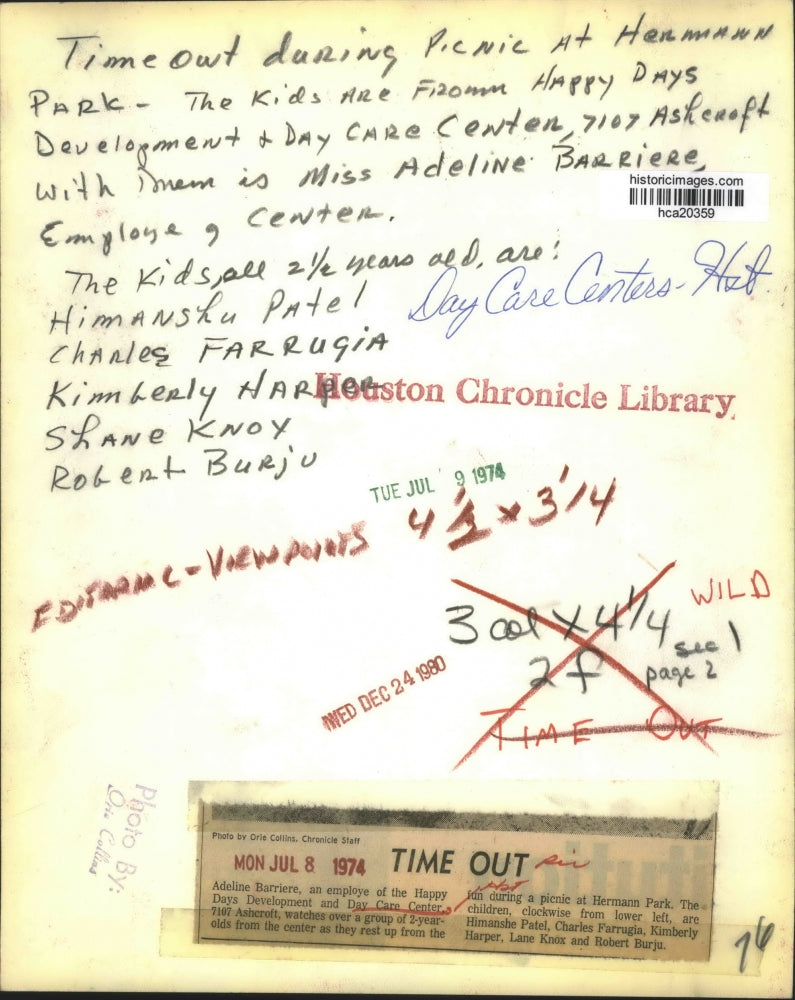 Time out during Picnic At Hermann
Park - The Kids Are From Happy Days
Development & Day Care Center, 7107 Ashcroft
With them is Miss Adeline Barriere,
Employe of Center.
historicimages.com
hca20359
The Kids, all 2½ years old, are:
Day Care Centers - Hst
Himanshu Patel
Charles Farrugia
Kimberly Harper
Houston Chronicle Library
Shane Knox
Robert Burju
TUE JUL 9 1974
4 1/2 x 3 1/4
EDITORIAL - VIEWPOINTS
WILD
3 col x 4 1/4
sec 1
2 f
page 2
WED DEC 24 1980
TIME OUT
Photo By:
Orie Collins
Photo by Orie Collins, Chronicle Staff
MON JUL 8 1974
TIME OUT
Adeline Barriere, an employe of the Happy
Days Development and Day Care Center,
7107 Ashcroft, watches over a group of 2-year-
olds from the center as they rest up from the
Hst
fun during a picnic at Hermann Park. The
children, clockwise from lower left, are
Himanshe Patel, Charles Farrugia, Kimberly
Harper, Lane Knox and Robert Burju.